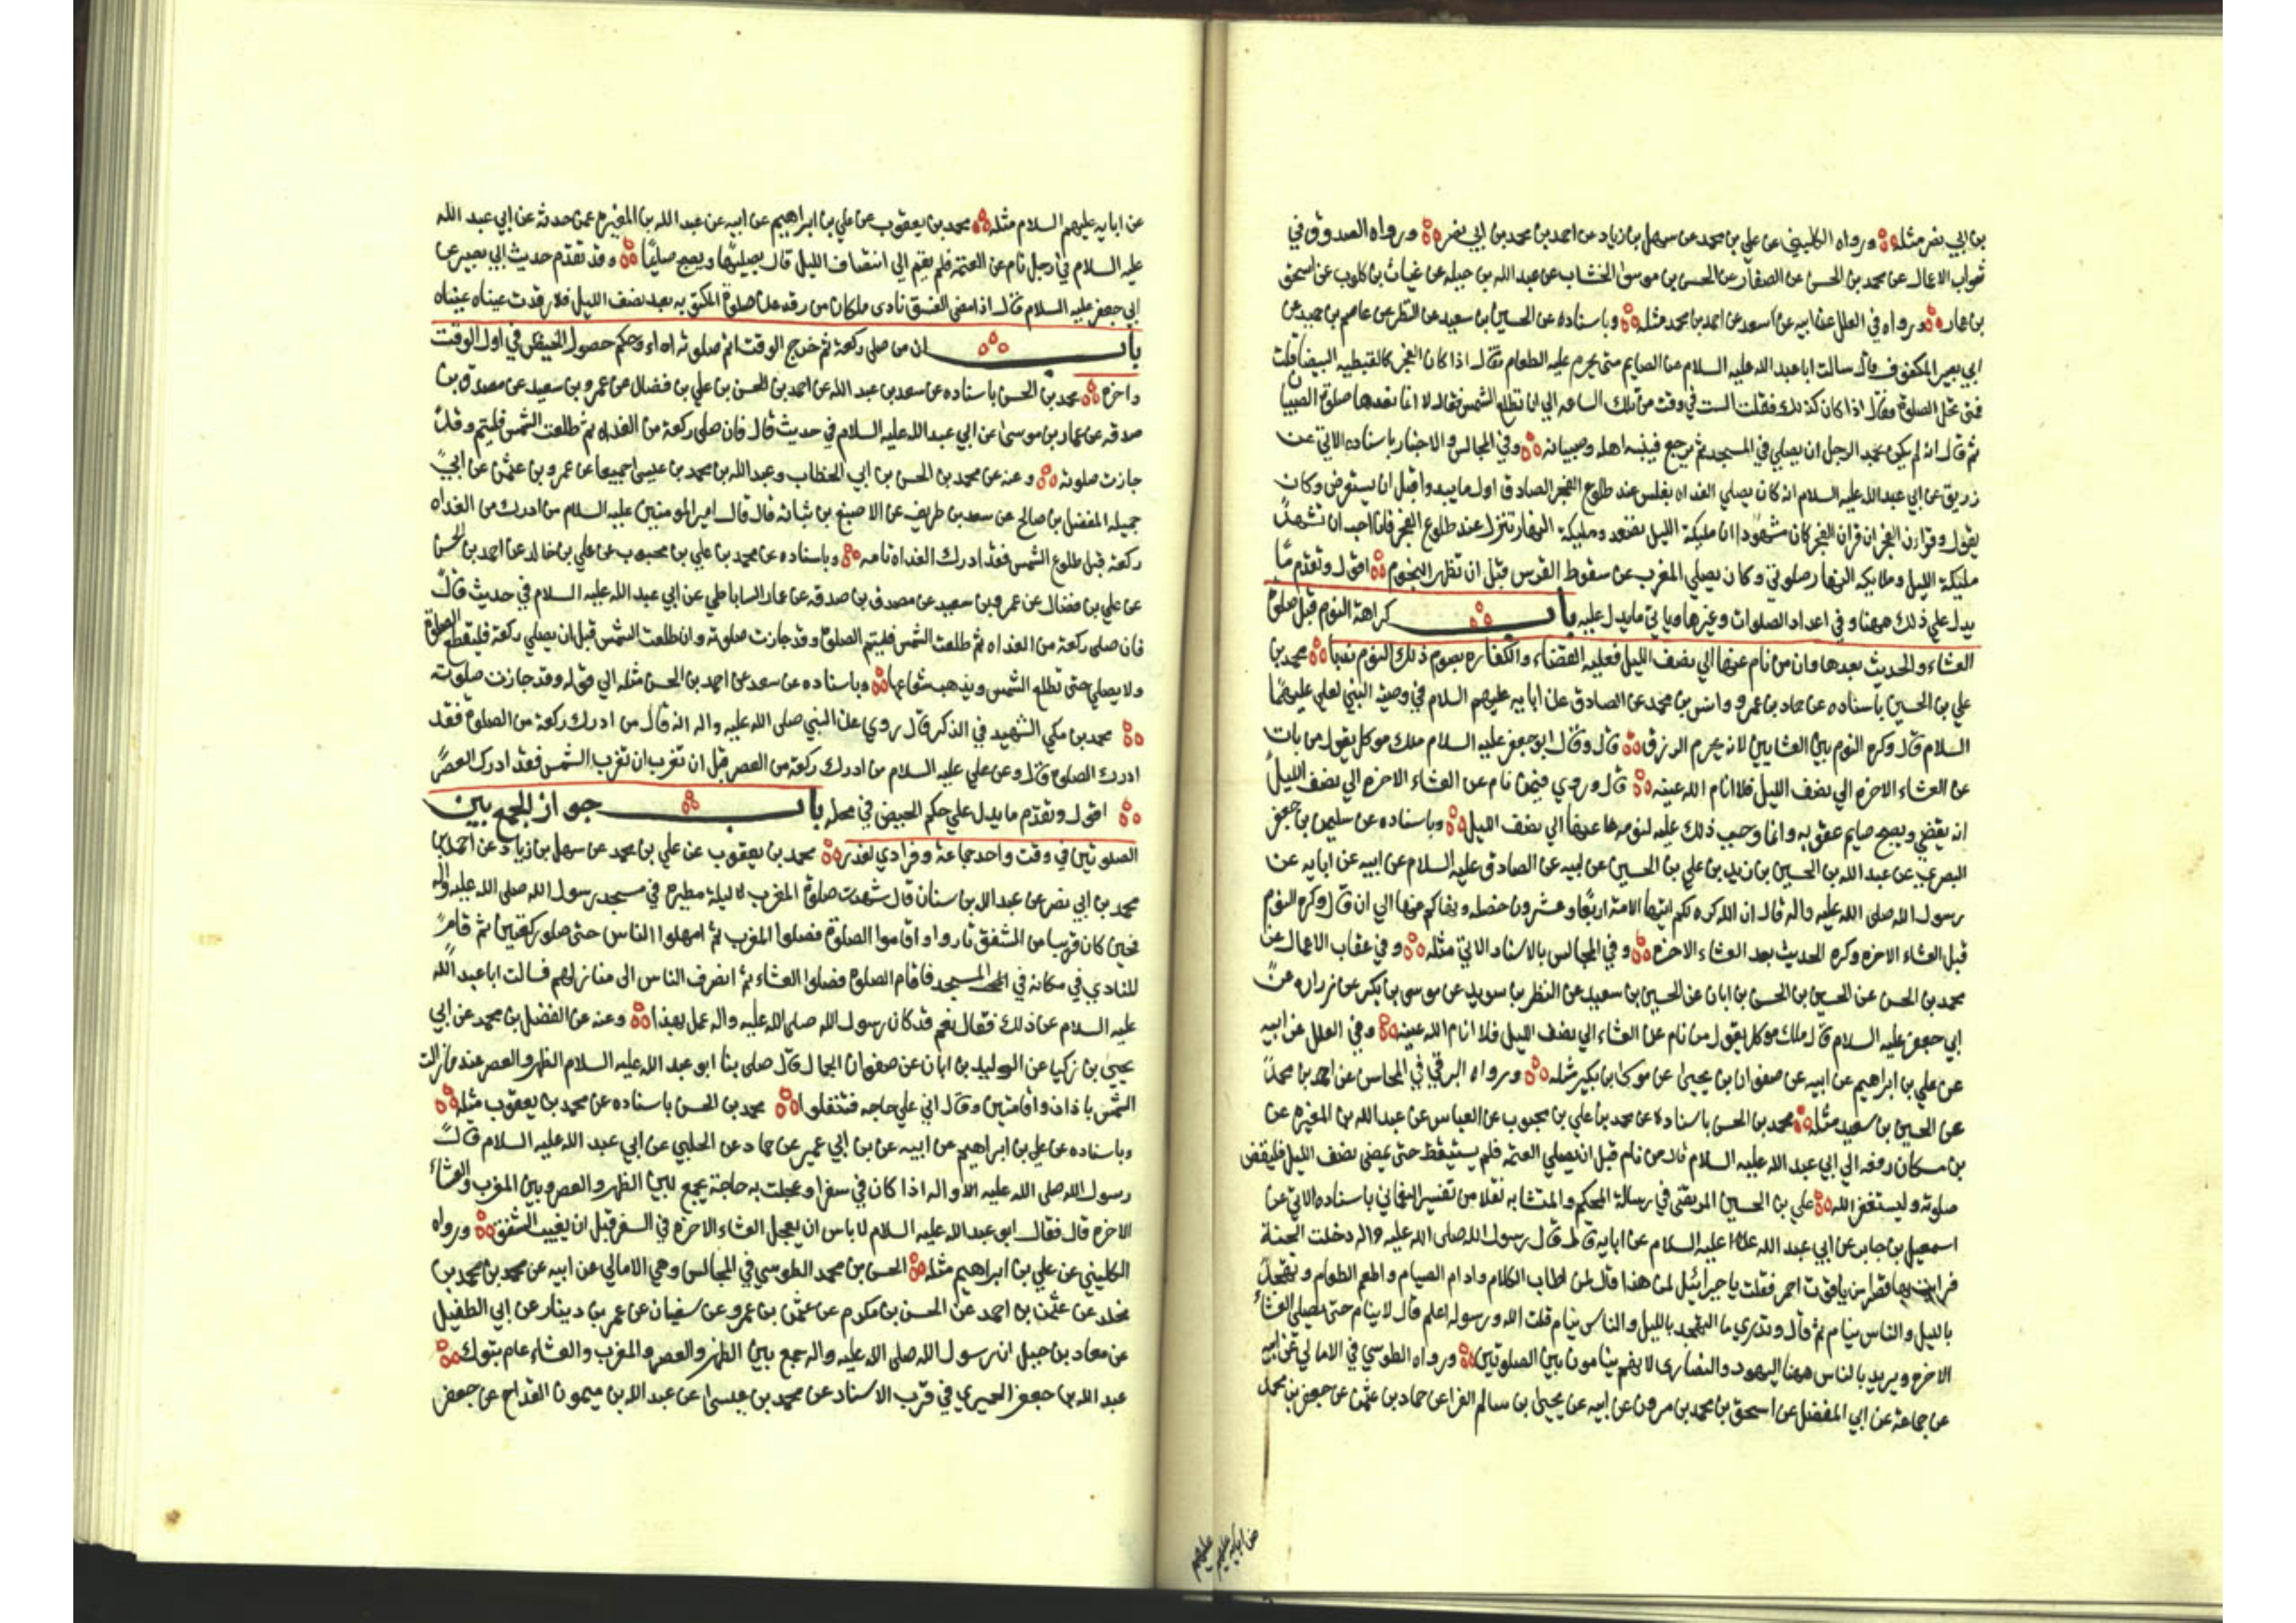 بن ابي نصر مثله ورواه الكليني عن علي بن محمد عن سهل بن زياد عن احمد بن محمد بن ابي نصر ورواه الصدوق في
ثواب الاعمال عن محمد بن الحسن عن الصفار عن الحسن بن موسى الخشاب عن عبد الله بن جبله عن غياث بن كلوب عن اسحق
بن عمار ورواه في العلل عن ابيه عن سعد عن احمد بن محمد مثله وباسناده عن الحسين بن سعيد عن النظر عن عاصم بن حميد عن
ابي بصير المكفوف قال سالت ابا عبد الله عليه السلام عن الصايم متى يحرم عليه الطعام فقال اذا كان الفجر كالقبطيه البيضا قلت
فمتى تحل الصلوة فقال اذا كان كذلك فقلت الست في وقت من تلك الساعه الي ان تطلع الشمس فقال لا انما نعدها صلوة الصبيا
ثم قال انه لم يكن يحمد الرجل ان يصلي في المسجد ثم يرجع فينبه اهله وصبيانه وفي المجالس والاخبار باسناده الاتي عن
زريق عن ابي عبد الله عليه السلام انه كان يصلي الغداه بغلس عند طلوع الفجر الصادق اول ما يبدوا قبل ان يستعرض وكان
يقول وقرءان الفجر ان قران الفجر كان مشهودا ان مليكة الليل تصعد ومليكة النهار تنزل عند طلوع الفجر فانا احب ان تشهد
مليكة الليل وملايكه النهار صلوتي وكان يصلي المغرب عن سقوط القرص قبل ان تظهر النجوم اقول وتقدم ما
يدل علي ذلك ههنا وفي اعداد الصلوات وغيرها وياتي ما يدل عليه باب كراهة النوم قبل صلوة
العشاء والحديث بعدها وان من نام عنها الي نصف الليل فعليه القضاء والكفاره بصوم ذلك اليوم محمد بن
علي بن الحسين باسناده عن حماد بن عمرو وانس بن محمد عن الصادق عن ابايه عليهم السلام في وصية النبي لعلي عليهما
السلام قال وكره النوم بين العشايين لانه يحرم الرزق قال وقال ابو جعفر عليه السلام ملك موكل يقول من بات
عن العشاء الاخره الي نصف الليل فلا انام الله عينه قال وروي فيمن نام عن العشاء الاخره الي نصف الليل
انه يقضي ويصبح صايم عقوبه وانما وجب ذلك عليه لنومه عنها الي نصف الليل وباسناده عن سليمن بن جعفر
البصري عن عبد الله بن الحسين بن زيد بن علي بن الحسين عن ابيه عن الصادق عليه السلام عن ابيه عن ابايه عن
رسول الله صلى الله عليه واله قال ان الله كره لكم ايتها الامة اربعا وعشرون خصله ونهاكم عنها الي ان قال وكره النوم
قبل العشاء الاخره وكره الحديث بعد العشاء الاخره وفي المجالس بالاسناد الاتي مثله وفي عقاب الاعمال عن
محمد بن الحسن عن الحسين بن الحسن بن ابان عن الحسين بن سعيد عن النظر بن سويد عن موسى بن بكر عن زراره عن
ابي جعفر عليه السلام قال ملك موكل يقول من نام عن العشاء الي نصف الليل فلا انام الله عينه وفي العلل عن ابيه
عن علي بن ابراهيم عن ابيه عن صفوان بن يحيى عن موسى بن بكر مثله ورواه البرقي في المحاسن عن احمد بن محمد
عن الحسين بن سعيد مثله محمد بن الحسن باسناده عن محمد بن علي بن محبوب عن العباس عن عبد الله بن المغيره عن
بن مسكان رفعه الي ابي عبد الله عليه السلام قال من نام قبل ان يصلي العتمه فلم يستيقظ حتى يمضي نصف الليل فليقض
صلوته وليستغفر الله علي بن الحسين المرتضى في رسالة المحكم والمتشابه نقلا من تفسير النعماني باسناده الاتي عن
اسمعيل بن جابر عن ابي عبد الله عليه السلام عن ابايه قال قال رسول الله صلى الله عليه واله دخلت الجنة
فرايت بها قصرا من ياقوت احمر فقلت يا جبرائيل لمن هذا قال لمن اطاب الكلام وادام الصيام واطعم الطعام وتهجد
بالليل والناس نيام ثم قال وتدري ما التهجد بالليل والناس نيام قلت الله ورسوله اعلم قال لا ينام حتى يصلي العشاء
الاخره ويريد بالناس ههنا اليهود والنصارى لانهم ينامون بين الصلوتين ورواه الطوسي في الامالي عن ابيه
عن جماعة عن ابي المفضل عن اسحق بن محمد بن مرون عن ابيه عن يحيى بن سالم الفرا عن حماد بن عثمن عن جعفر بن محمد
عن ابايه عليهم
عن ابايه عليهم السلام مثله محمد بن يعقوب عن علي بن ابراهيم عن ابيه عن عبد الله بن المغيره عمن حدثه عن ابي عبد الله
عليه السلام في رجل نام عن العتمة فلم يقم الي انتصاف الليل قال يصليها ويصبح صايما وقد تقدم حديث ابي بصير عن
ابي جعفر عليه السلام قال اذا مضى الغسق نادى ملكان من رقد عن صلوة المكتوبه بعد نصف الليل فلا رقدت عيناه
باب ان من صلى ركعة ثم خرج الوقت اتم صلوته اداء وحكم حصول الحيض في اول الوقت
واخره محمد بن الحسن باسناده عن سعد بن عبد الله عن احمد بن الحسن بن علي بن فضال عن عمرو بن سعيد عن مصدق بن
صدقه عن عمار بن موسى عن ابي عبد الله عليه السلام في حديث قال فان صلى ركعة من الغداه ثم طلعت الشمس فليتم وقد
جازت صلوته وعنه عن محمد بن الحسن بن ابي الخطاب وعبد الله بن محمد بن عيسى جميعا عن عمرو بن عثمن عن ابي
جميله المفضل بن صالح عن سعد بن طريف عن الاصبغ بن نباته قال قال امير المومنين عليه السلام من ادرك من الغداه
ركعة قبل طلوع الشمس فقد ادرك الغداه تامه وباسناده عن محمد بن علي بن محبوب عن علي بن خالد عن احمد بن الحسن
عن علي بن فضال عن عمرو بن سعيد عن مصدق بن صدقه عن عمار الساباطي عن ابي عبد الله عليه السلام في حديث قال
فان صلى ركعة من الغداه ثم طلعت الشمس فليتم الصلوة وقد جازت صلوته وان طلعت الشمس قبل ان يصلي ركعة فليقطع الصلوة
ولا يصلي حتى تطلع الشمس ويذهب شعاعها وباسناده عن سعد عن احمد بن الحسن مثله الي قوله وقد جازت صلوته
محمد بن مكي الشهيد في الذكرى قال روي عن النبي صلى الله عليه واله انه قال من ادرك ركعة من الصلوة فقد
ادرك الصلوة قال وعن علي عليه السلام من ادرك ركعة من العصر قبل ان تغرب الشمس فقد ادرك العصر
اقول وتقدم ما يدل علي حكم الحيض في محله باب جواز الجمع بين
الصلوتين في وقت واحد جماعة وفرادي لعذر محمد بن يعقوب عن علي بن محمد عن سهل بن زياد عن احمد بن
محمد بن ابي نصر عن عبد الله بن سنان قال شهدت صلوة المغرب ليلة مطيره في مسجد رسول الله صلى الله عليه واله
فحين كان قريبا من الشفق ثاروا واقاموا الصلوة فصلوا المغرب ثم امهلوا الناس حتى صلوا ركعتين ثم قام
المنادي في مكانه في المسجد فاقام الصلوة فصلوا العشاء ثم انصرف الناس الى منازلهم فسالت ابا عبد الله
عليه السلام عن ذلك فقال نعم قد كان رسول الله صلى الله عليه واله عمل بهذا وعنه عن الفضل بن محمد عن ابي
يحيى بن زكريا عن الوليد بن ابان عن صفوان الجمال قال صلى بنا ابو عبد الله عليه السلام الظهر والعصر عند ما زالت
الشمس باذان واقامتين وقال اني علي حاجه فتنفلوا محمد بن الحسن باسناده عن محمد بن يعقوب مثله
وباسناده عن علي بن ابراهيم عن ابيه عن بن ابي عمير عن حماد عن الحلبي عن ابي عبد الله عليه السلام قال
رسول الله صلى الله عليه واله اذا كان في سفر او عجلت به حاجة يجمع بين الظهر والعصر وبين المغرب والعشاء
الاخره قال فقال ابو عبد الله عليه السلام لا باس ان يعجل العشاء الاخره في السفر قبل ان يغيب الشفق ورواه
الكليني عن علي بن ابراهيم مثله الحسن بن محمد الطوسي في المجالس وهي الامالي عن ابيه عن محمد بن محمد بن
مخلد عن عثمن بن احمد عن الحسن بن مكرم عن عثمن بن عمرو عن سفيان عن عمر بن دينار عن ابي الطفيل
عن معاد بن جبل ان رسول الله صلى الله عليه واله جمع بين الظهر والعصر والمغرب والعشاء عام بتوك
عبد الله بن جعفر الحميري في قرب الاسناد عن محمد بن عيسى عن عبد الله بن ميمون القداح عن جعفر